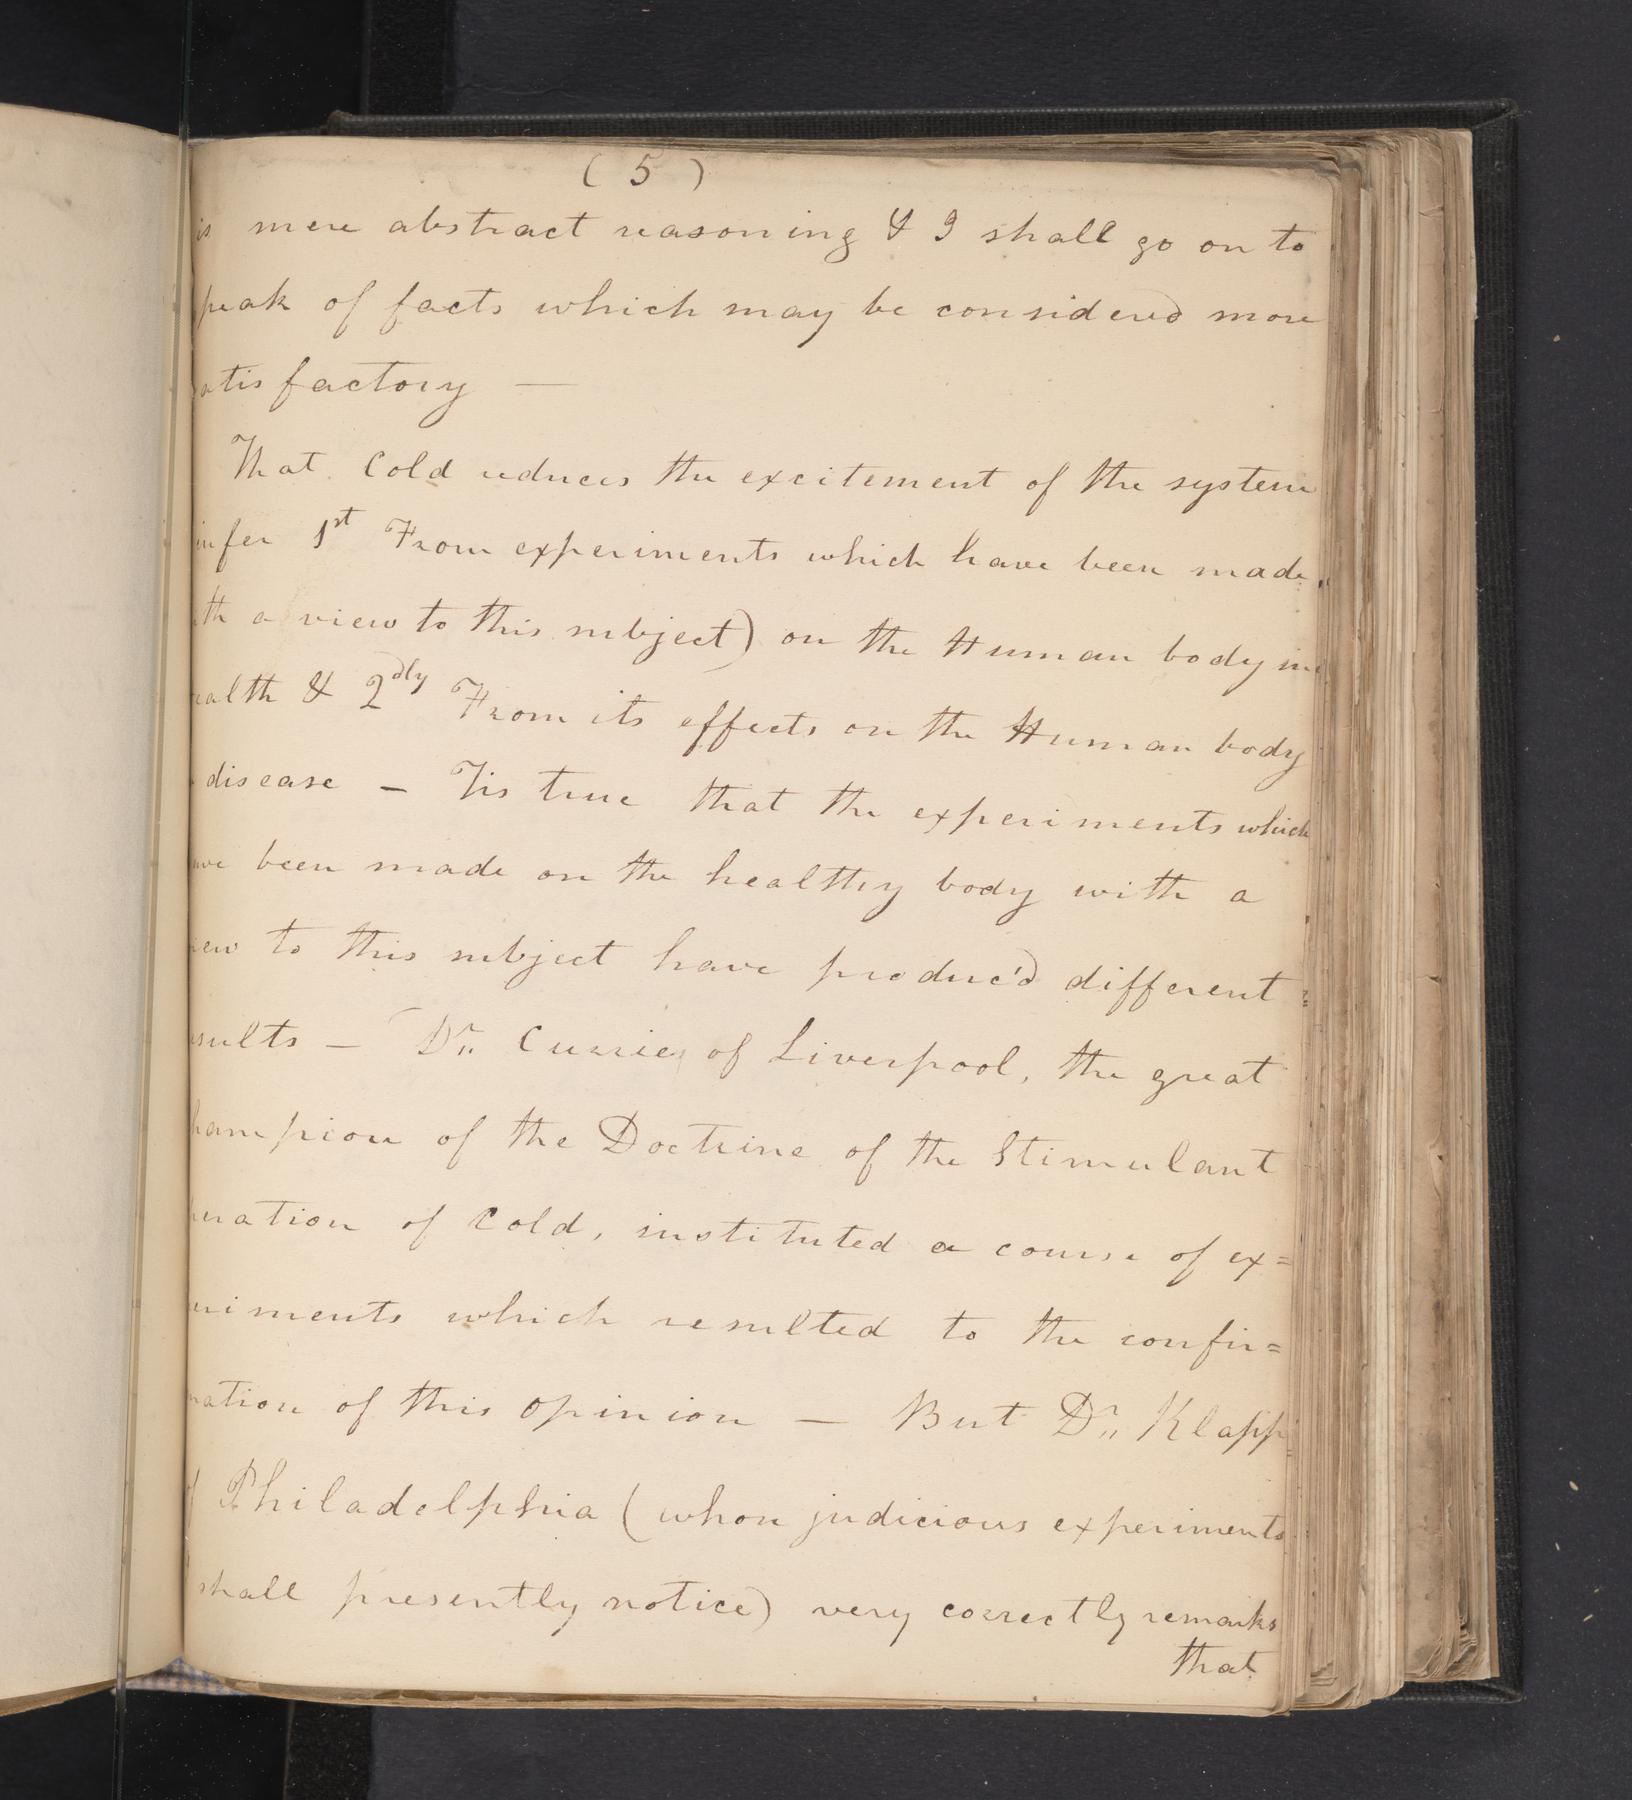 ( 5 )
is mere abstract reasoning & I shall go on to
peak of facts which may be considered more
atisfactory —
That Cold reduces the excitement of the system
infer 1st From experiments which have been made
ith a view to this subject) on the Human body in
ealth & 2dly From its effects on the Human body
disease — Tis true that the experiments which
ave been made on the healthy body with a
iew to this subject have produc'd different
esults — Dr. Currie of Liverpool, the great
hampion of the Doctrine of the Stimulant
eration of Cold, instituted a course of ex=
eriments which resulted to the confir=
mation of this opinion — But Dr. Klapp
of Philadelphia (whose judicious experiments
shall presently notice) very correctly remarks
that